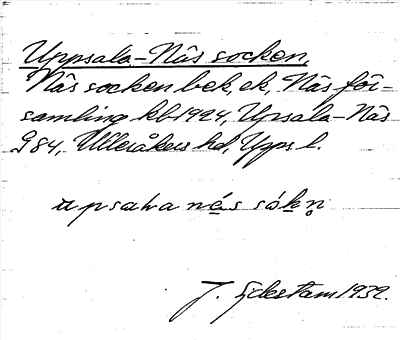 Uppsala-Näs socken,
Näs socken bek, ek, Näs för-
samling kb 1924, Upsala-Näs
G 84, Ulleråkers hd, Upps l.
upsala nɛs såkn̥
J. Ejdestam 1939.